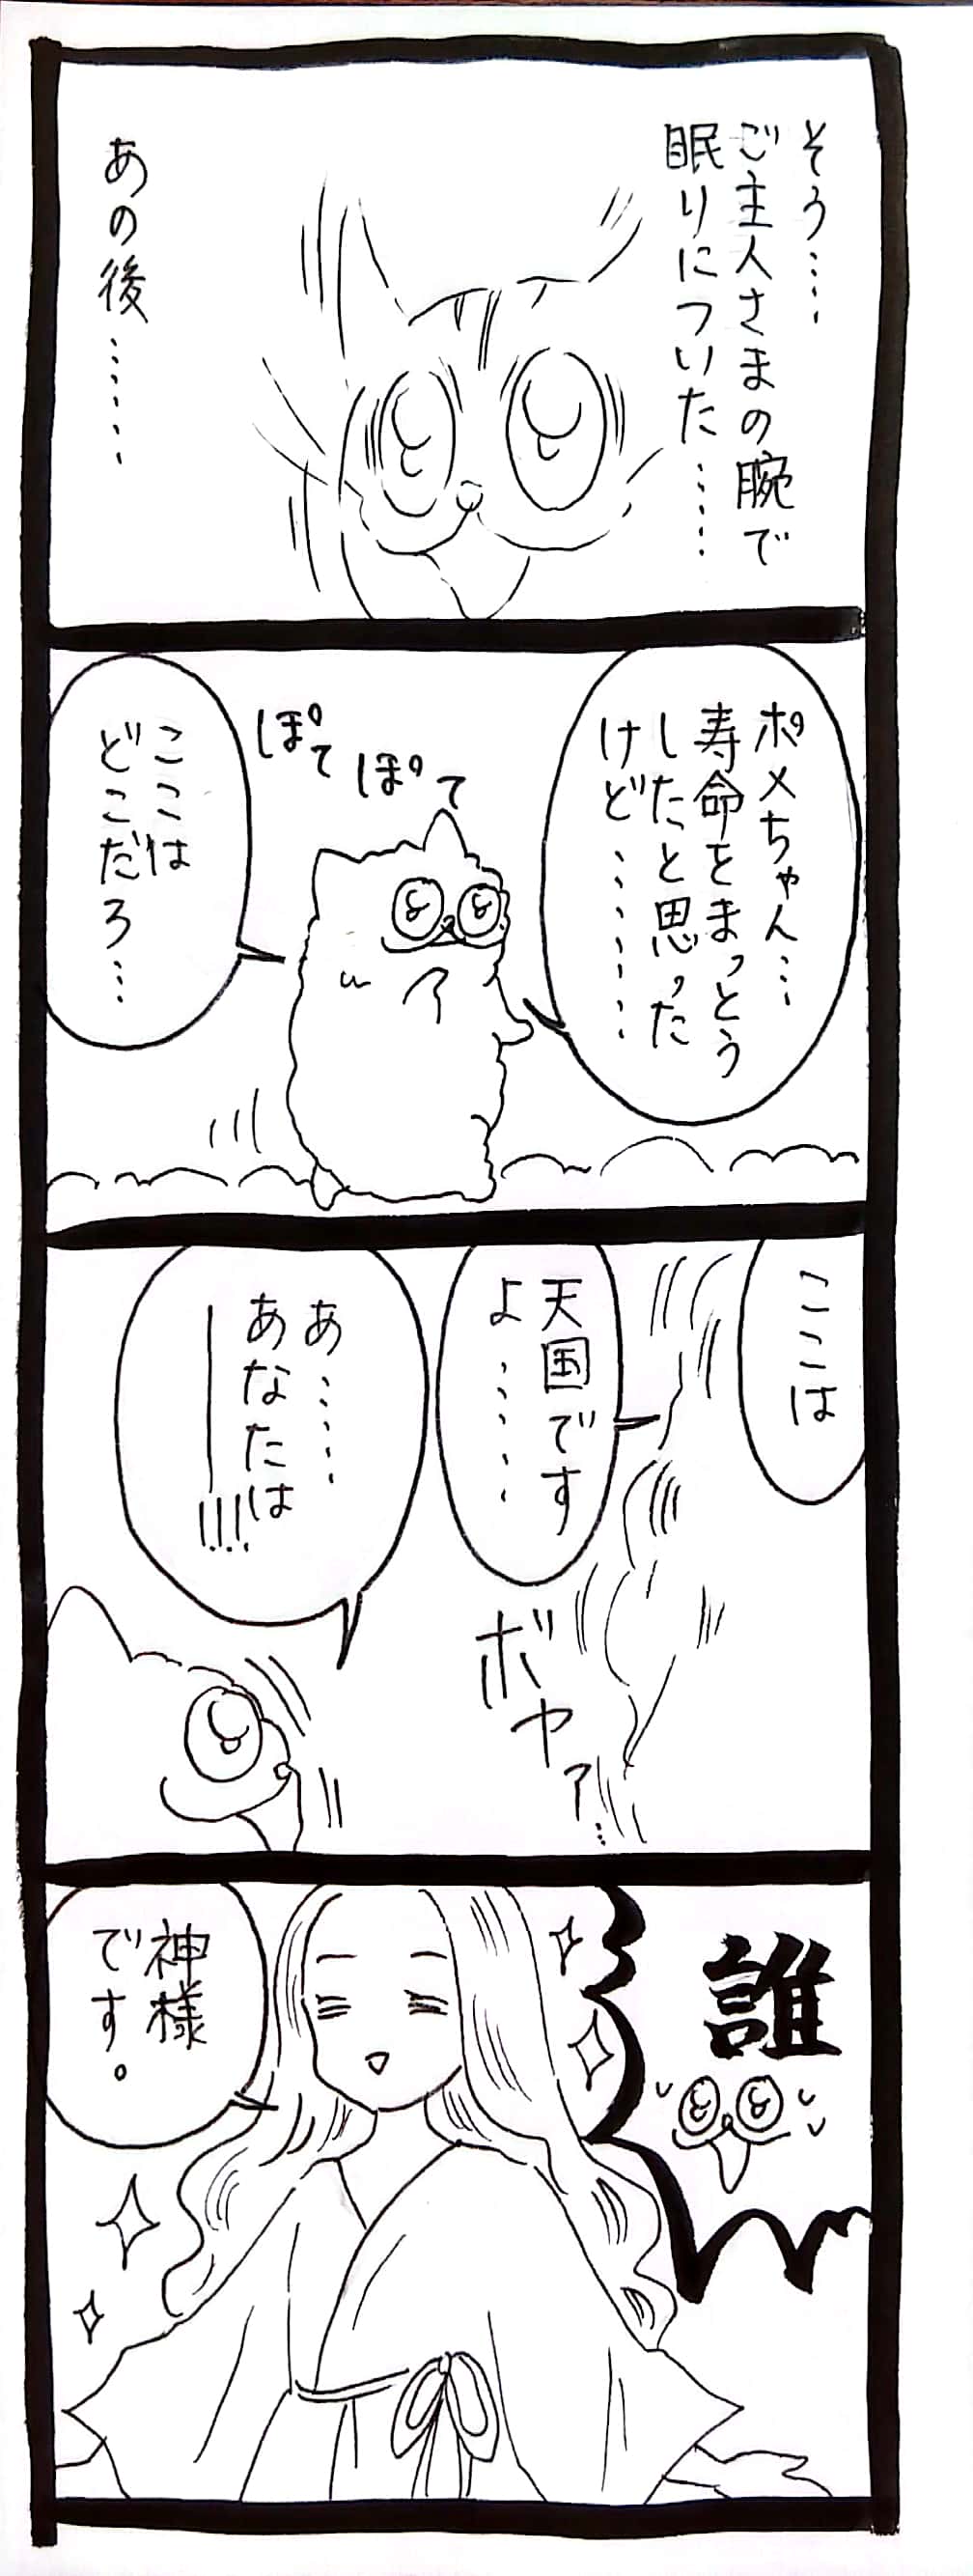 そう……
ご主人さまの腕で
眠りについた……
あの後……
ポメちゃん…
寿命をまっとう
したと思った
けど……
ぽてぽて
ここは
どこだろ…
ここは
天国です
よ……
ボヤァ…
あ……
あなたは
――!!!!
誰
神様
です。